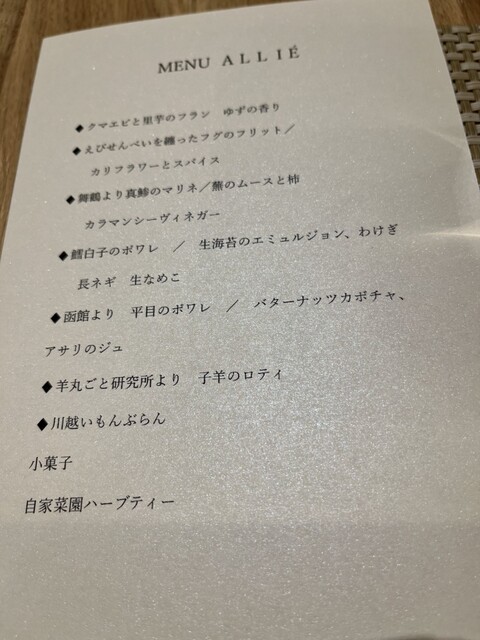 MENU ALLIÉ
◆クマエビと里芋のフラン　ゆずの香り
◆えびせんべいを纏ったフグのフリット／
カリフラワーとスパイス
◆舞鶴より真鯵のマリネ／蕪のムースと柿
カラマンシーヴィネガー
◆鱈白子のポワレ　／　生海苔のエミュルジョン、わけぎ
長ネギ　生なめこ
◆函館より　平目のポワレ　／　バターナッツカボチャ、
アサリのジュ
◆羊丸ごと研究所より　子羊のロティ
◆川越いもんぶらん
小菓子
自家菜園ハーブティー